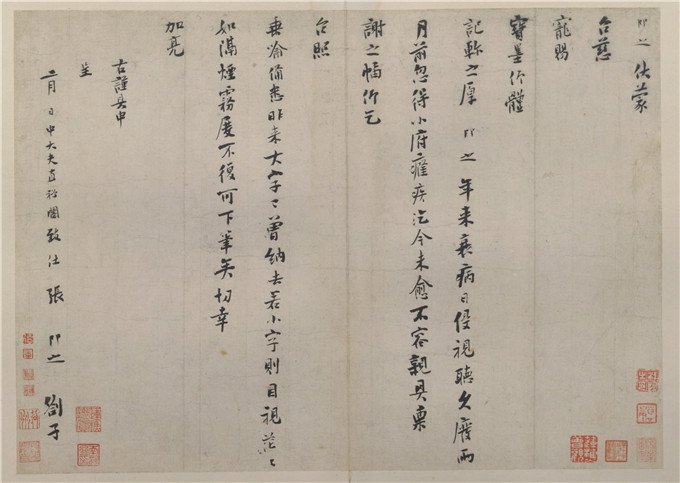 即之 伏蒙
台慈
寵賜
寶墨仰體
記齡之厚 即之 年来衰病日侵視聽久廢兩
月前忽得小府癰疾迄今未愈不容親具稟
謝之幅仰乞
台照
垂諭備悉昨来大字已曾納去若小字則目視茫々
如隔煙霧廢不復可下筆矣切幸
加亮
右謹具申
呈
二月 日中大夫直秘閣致仕張 即之 劄子